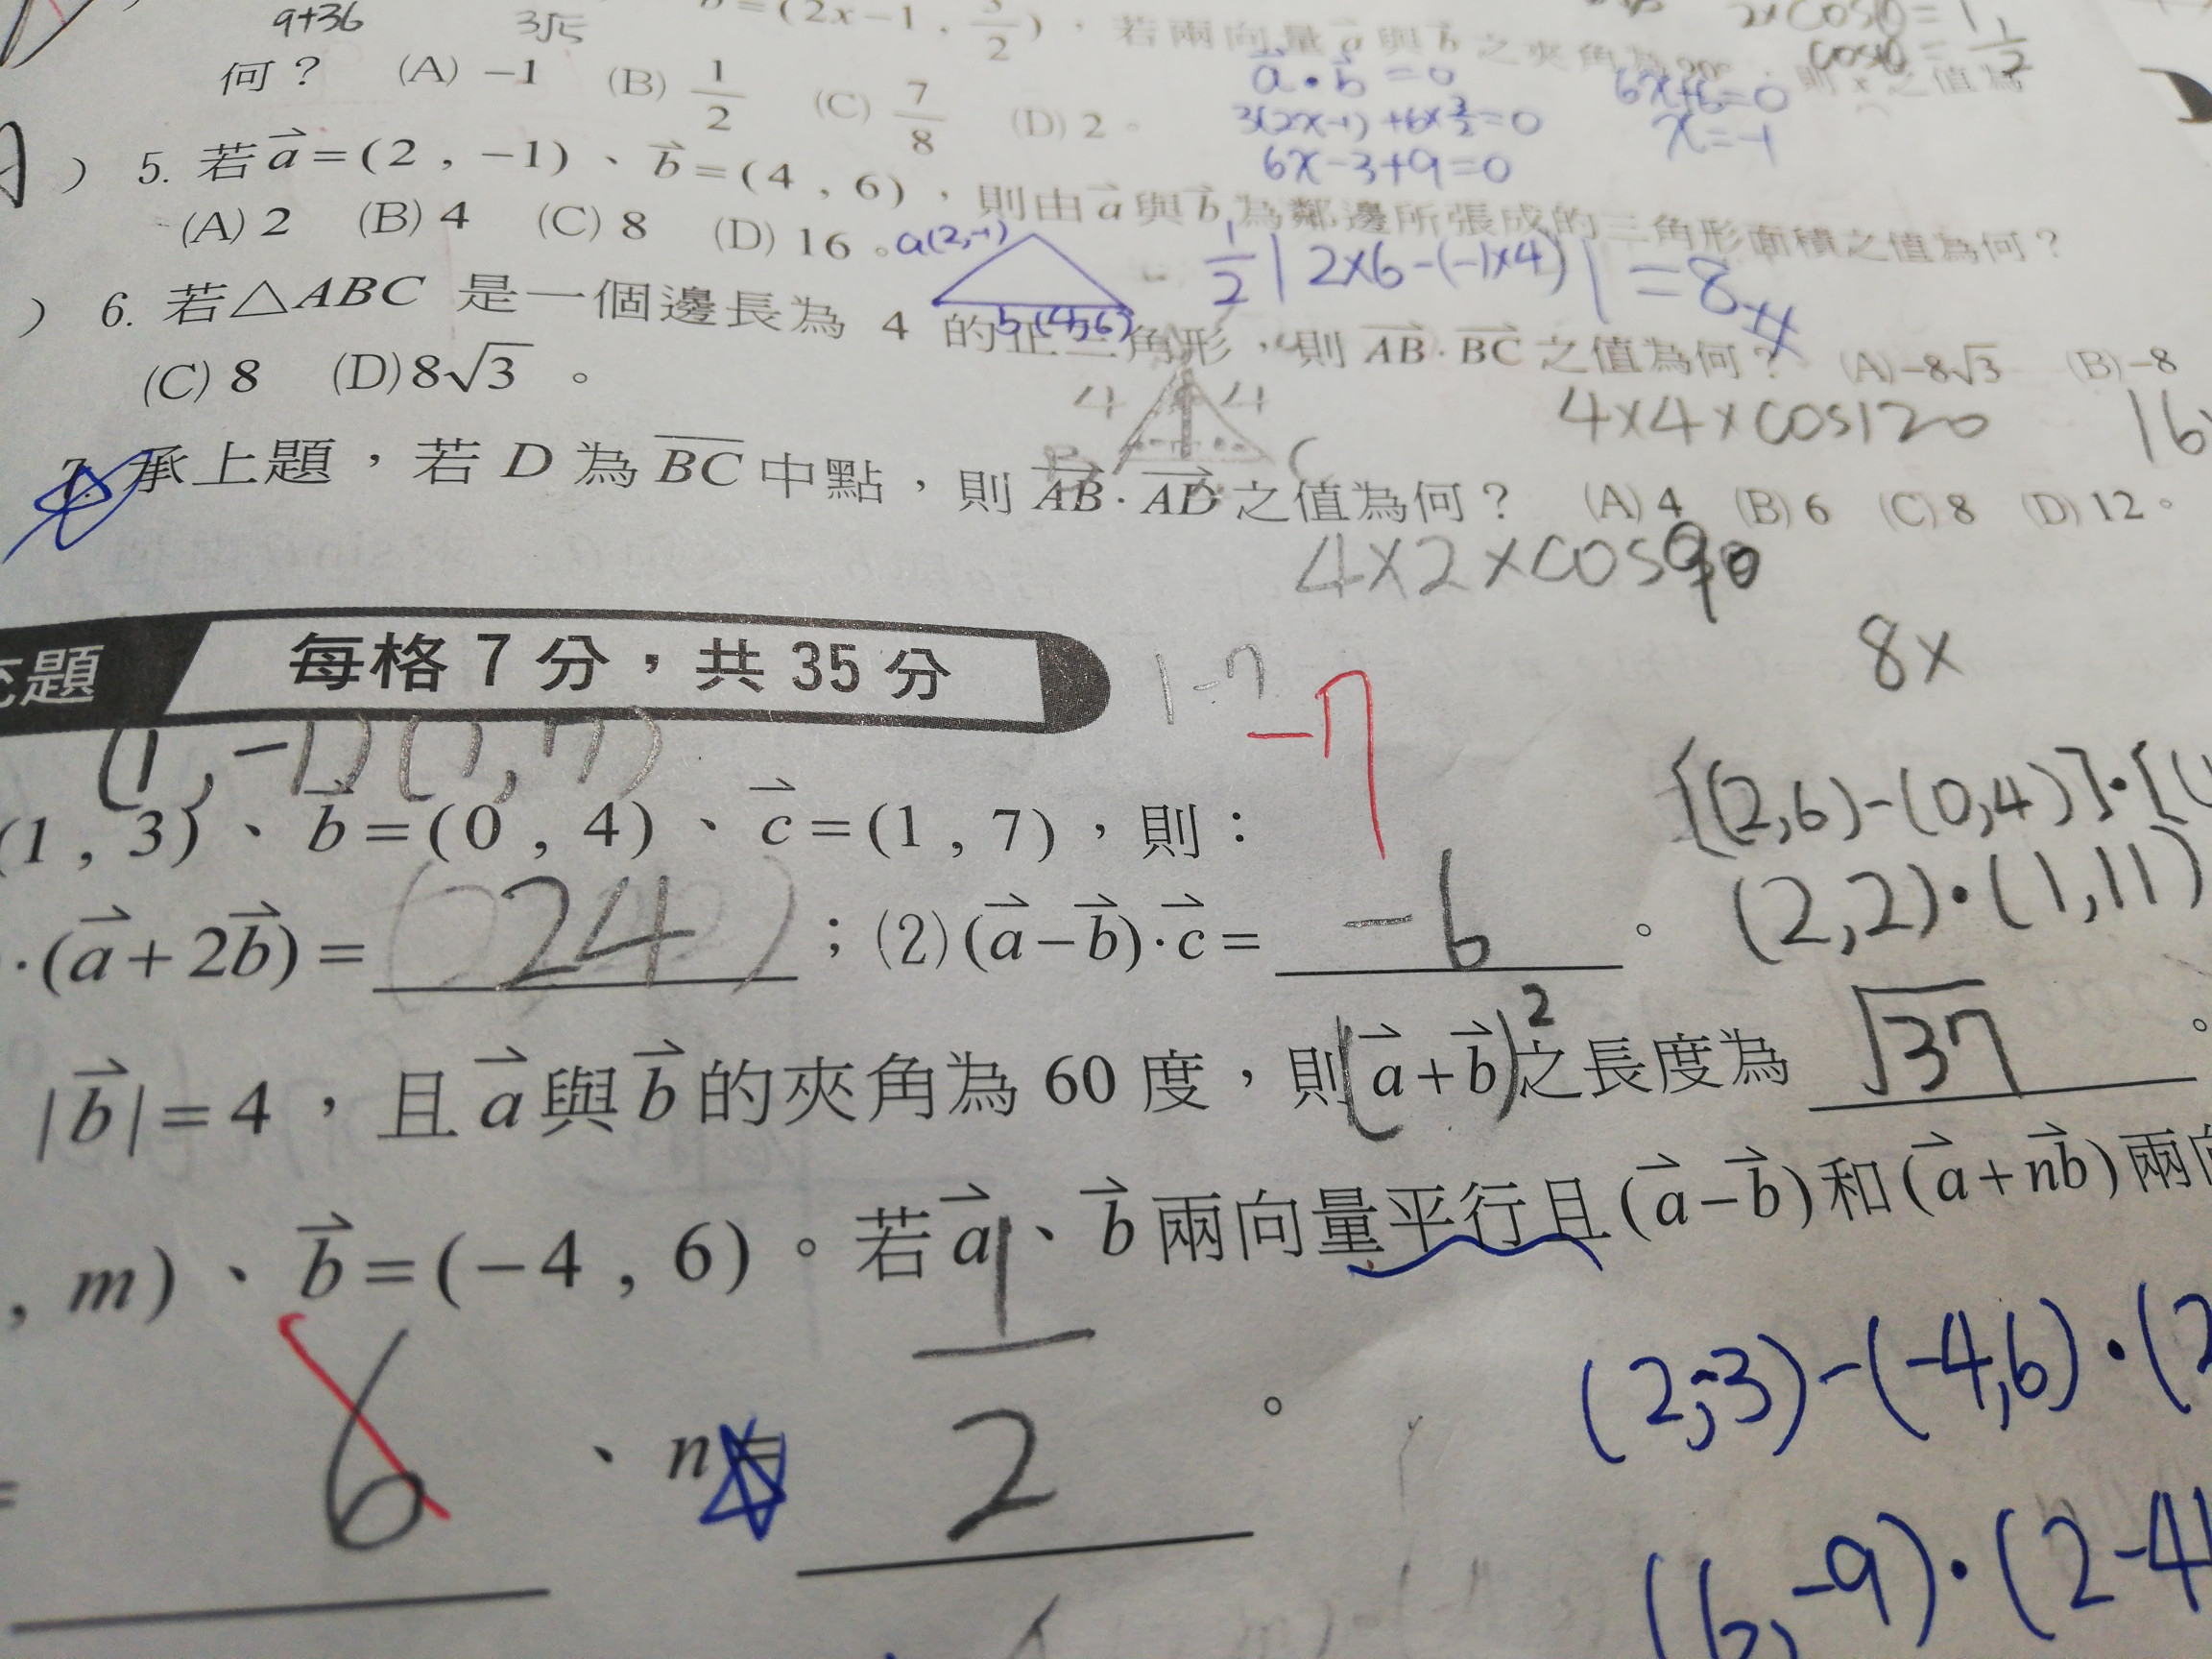 9+36
3√5
b=(2x−1,3/2),若兩向量a與b之夾角為90°,則x之值為
何? (A)−1 (B)1/2 (C)7/8 (D)2。
2×cosθ=1
cosθ=1/2
a·b=0
3(2x-1)+6×3/2=0
6x-3+9=0
6x+6=0
x=-1
) 5. 若a=(2,−1)、b=(4,6),則由a與b為鄰邊所張成的三角形面積之值為何?
(A)2 (B)4 (C)8 (D)16。
a(2,-1)
b(4,6)
1/2|2×6-(-1×4)|=8
) 6. 若△ABC 是一個邊長為 4 的正三角形,則AB·BC之值為何? (A)−8√3 (B)−8
(C)8 (D)8√3。
4 4
B C
4×4×cos120
16
7. 承上題,若D為BC中點,則AB·AD之值為何? (A)4 (B)6 (C)8 (D)12。
4×2×cos90
8×
題 每格7分,共35分
1-7
-7
(1,-1)(1,7)
(1,3)、b=(0,4)、c=(1,7),則:
{(2,6)-(0,4)]·[(
(2,2)·(1,11)
·(a+2b)= 24 ;(2)(a−b)·c= -6 。
|b|=4,且a與b的夾角為60度,則(a+b)²之長度為 √37 。
,m)、b=(−4,6)。若a、b兩向量平行且(a−b)和(a+nb)兩向
(2,-3)-(-4,6)·(2
= 6 、n= 1/2 。
(6,-9)·(2-4